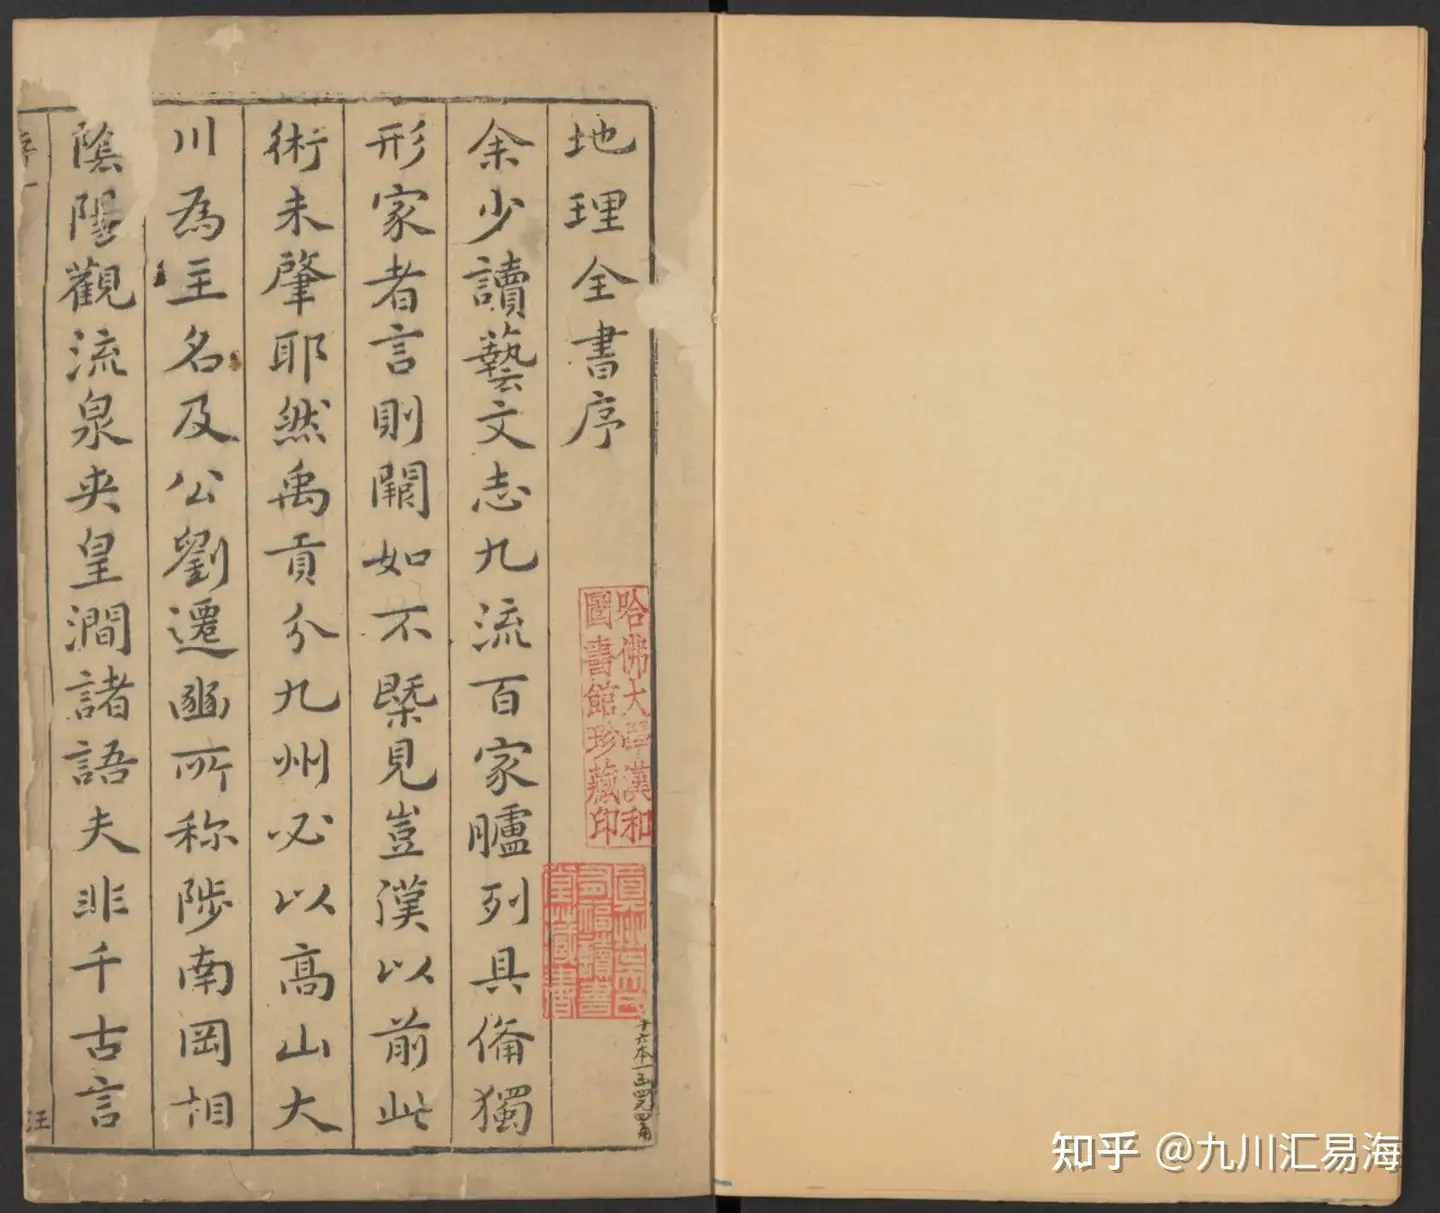 地理全書序
余少讀藝文志九流百家臚列具備獨
形家者言則闕如不槩見豈漢以前此
術未肇耶然禹貢分九州必以高山大
川為主名及公劉遷豳所称陟南岡相
陰陽觀流泉夹皇澗諸語夫非千古言
序一
汪
哈佛大學漢和
圖書館珍藏印
真州吳氏
有福讀書
堂藏書
十六本一函四元四角
知乎 @九川汇易海